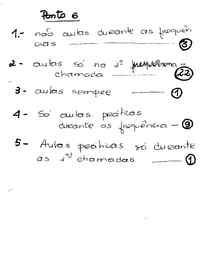 Ponto 6
1.- não aulas durante as frequên
cias — 3
2 - aulas só na 1ª
chamada — 22
3 - aulas sempre — 1
4 - Só aulas práticas
durante as frequência - 9
5 - Aulas práticas só durante
as 1ªs chamadas — 1